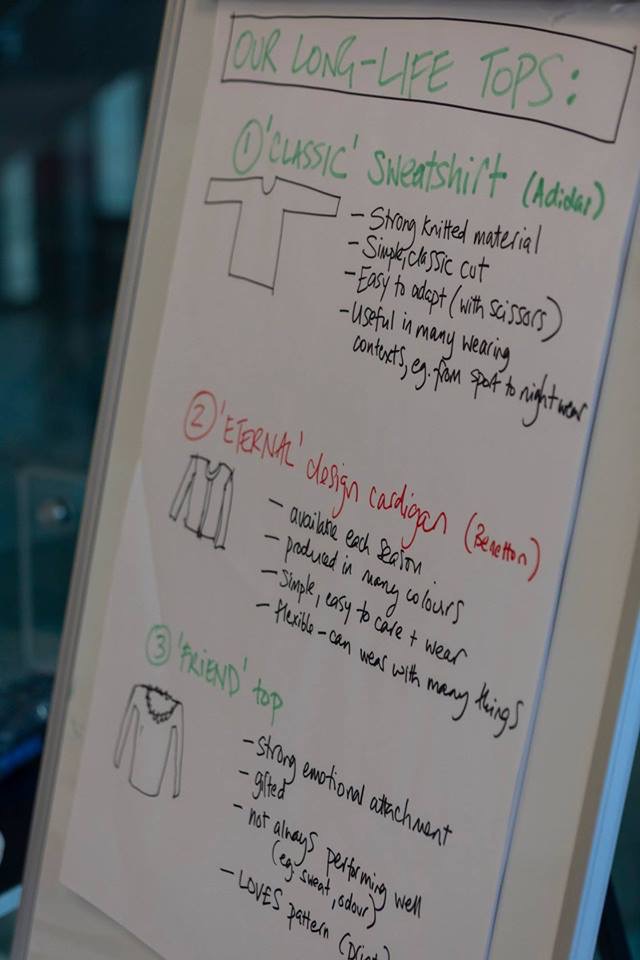 OUR LONG-LIFE TOPS:
① 'CLASSIC' sweatshirt (Adidas)
- Strong knitted material
- Simple, classic cut
- Easy to adapt (with scissors)
- Useful in many wearing
contexts, eg. from sport to nightwear
② 'ETERNAL' design cardigan (Benetton)
- available each season
- produced in many colours
- Simple, easy to care + wear
- flexible - can wear with many things
③ 'FRIEND' top
- strong emotional attachment
- gifted
- not always performing well
(eg sweat, odour)
- LOVES pattern (print)